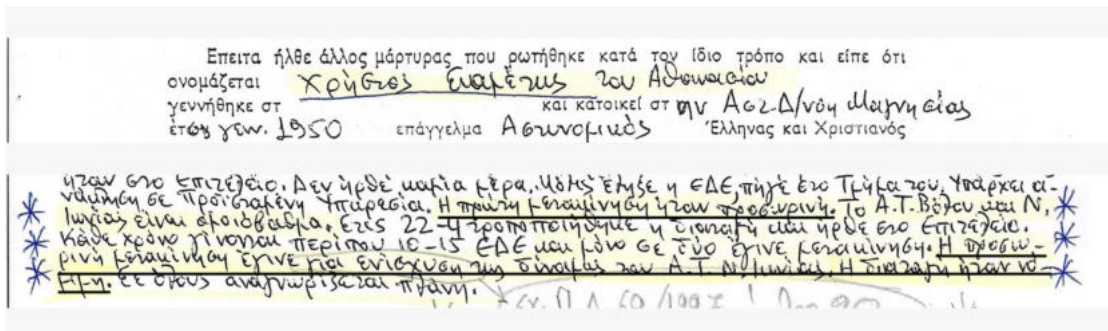 Επειτα ήλθε άλλος μάρτυρας που ρωτήθηκε κατά τον ίδιο τρόπο και είπε ότι
ονομάζεται Χρήστος του Αθανασίου
γεννήθηκε στ και κατοικεί στ ην Αστ. Δ/νση Μαγνησίας
έτος γεν. 1950 επάγγελμα Αστυνομικός Έλληνας και Χριστιανός
ήταν στο Επιτελείο. Δεν ήρθε καμία μέρα. Μόλις έληξε η ΕΔΕ, πήγε στο Τμήμα του. Υπάρχει α-
νάμιξη σε προϊσταμένη Υπηρεσία. Η πρώτη μετακίνηση ήταν προσωρινή. Το Α.Τ. Βόλου και Ν.
Ιωνίας είναι ομοιόβαθμα. Στις 22-4 τροποποιήθηκε η διαταγή και ήρθε στο Επιτελείο.
Κάθε χρόνο γίνονται περίπου 10-15 ΕΔΕ και μόνο σε δύο έγινε μετακίνηση. Η προσω-
ρινή μετακίνηση έγινε για ενίσχυση της δύναμης του Α.Τ. Ν. Ιωνίας. Η διαταγή ήταν νό-
μιμη. Σε όλους αναγνωρίζεται